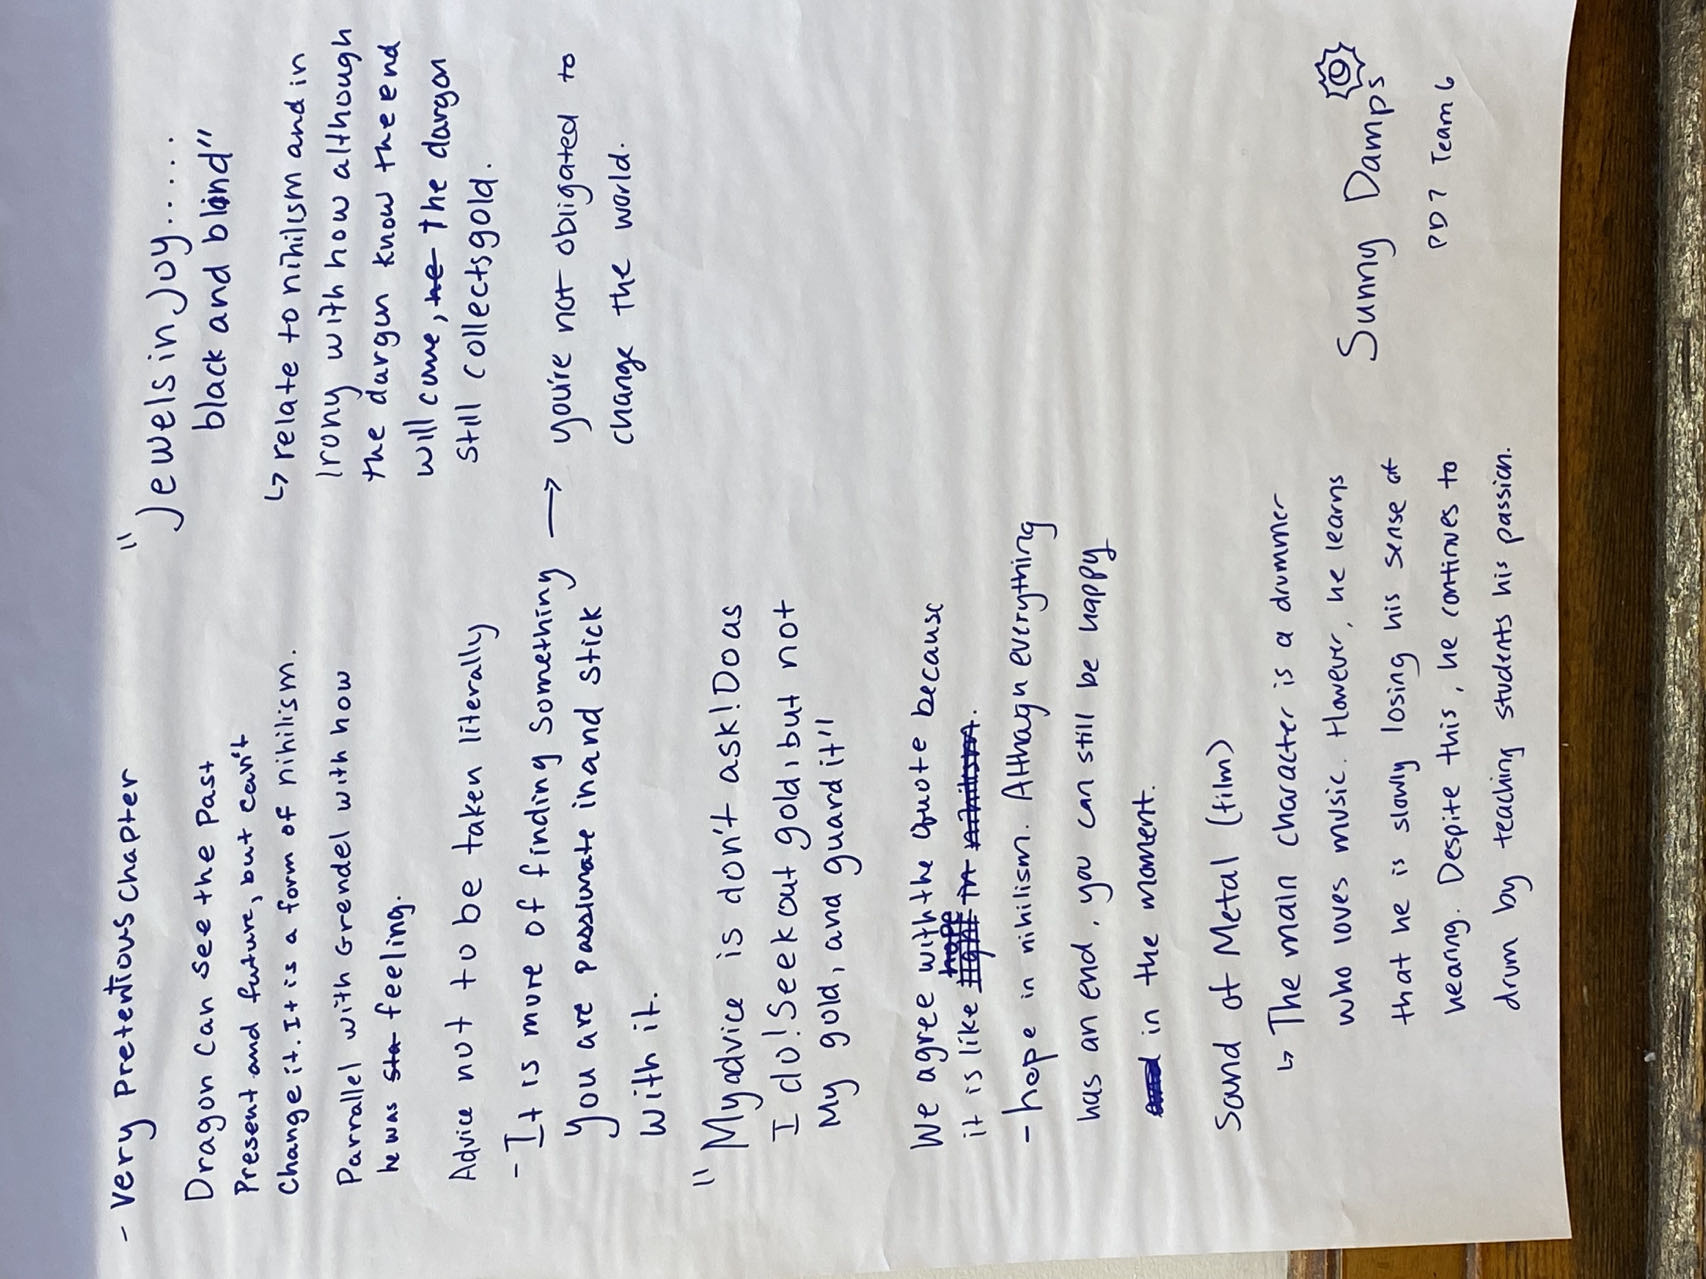 - Very Pretentious Chapter
Dragon can see the Past
Present and future, but can't
Change it. It is a form of nihilism.
Parrallel with Grendel with how
he was sta feeling.
Advice not to be taken literally
- It is more of finding something
you are passionate in and stick
with it.
"My advice is don't ask! Do as
I do! Seek out gold, but not
My gold, and guard it"
We agree with the quote because
hope
it is like light in nihilism.
- hope in nihilism. Although everything
has an end, you can still be happy
and in the moment.
Sound of Metal (film)
↳ The main character is a drummer
who loves music. However, he learns
that he is slowly losing his sense of
hearing. Despite this, he continues to
drum by teaching students his passion.
"Jewels in Joy.....
black and blind"
↳ relate to nihilism and in
Irony with how although
the dargon know the end
will come, he the dargon
still collects gold.
→ you're not obligated to
change the world.
Sunny Damps
PD7 Team 6